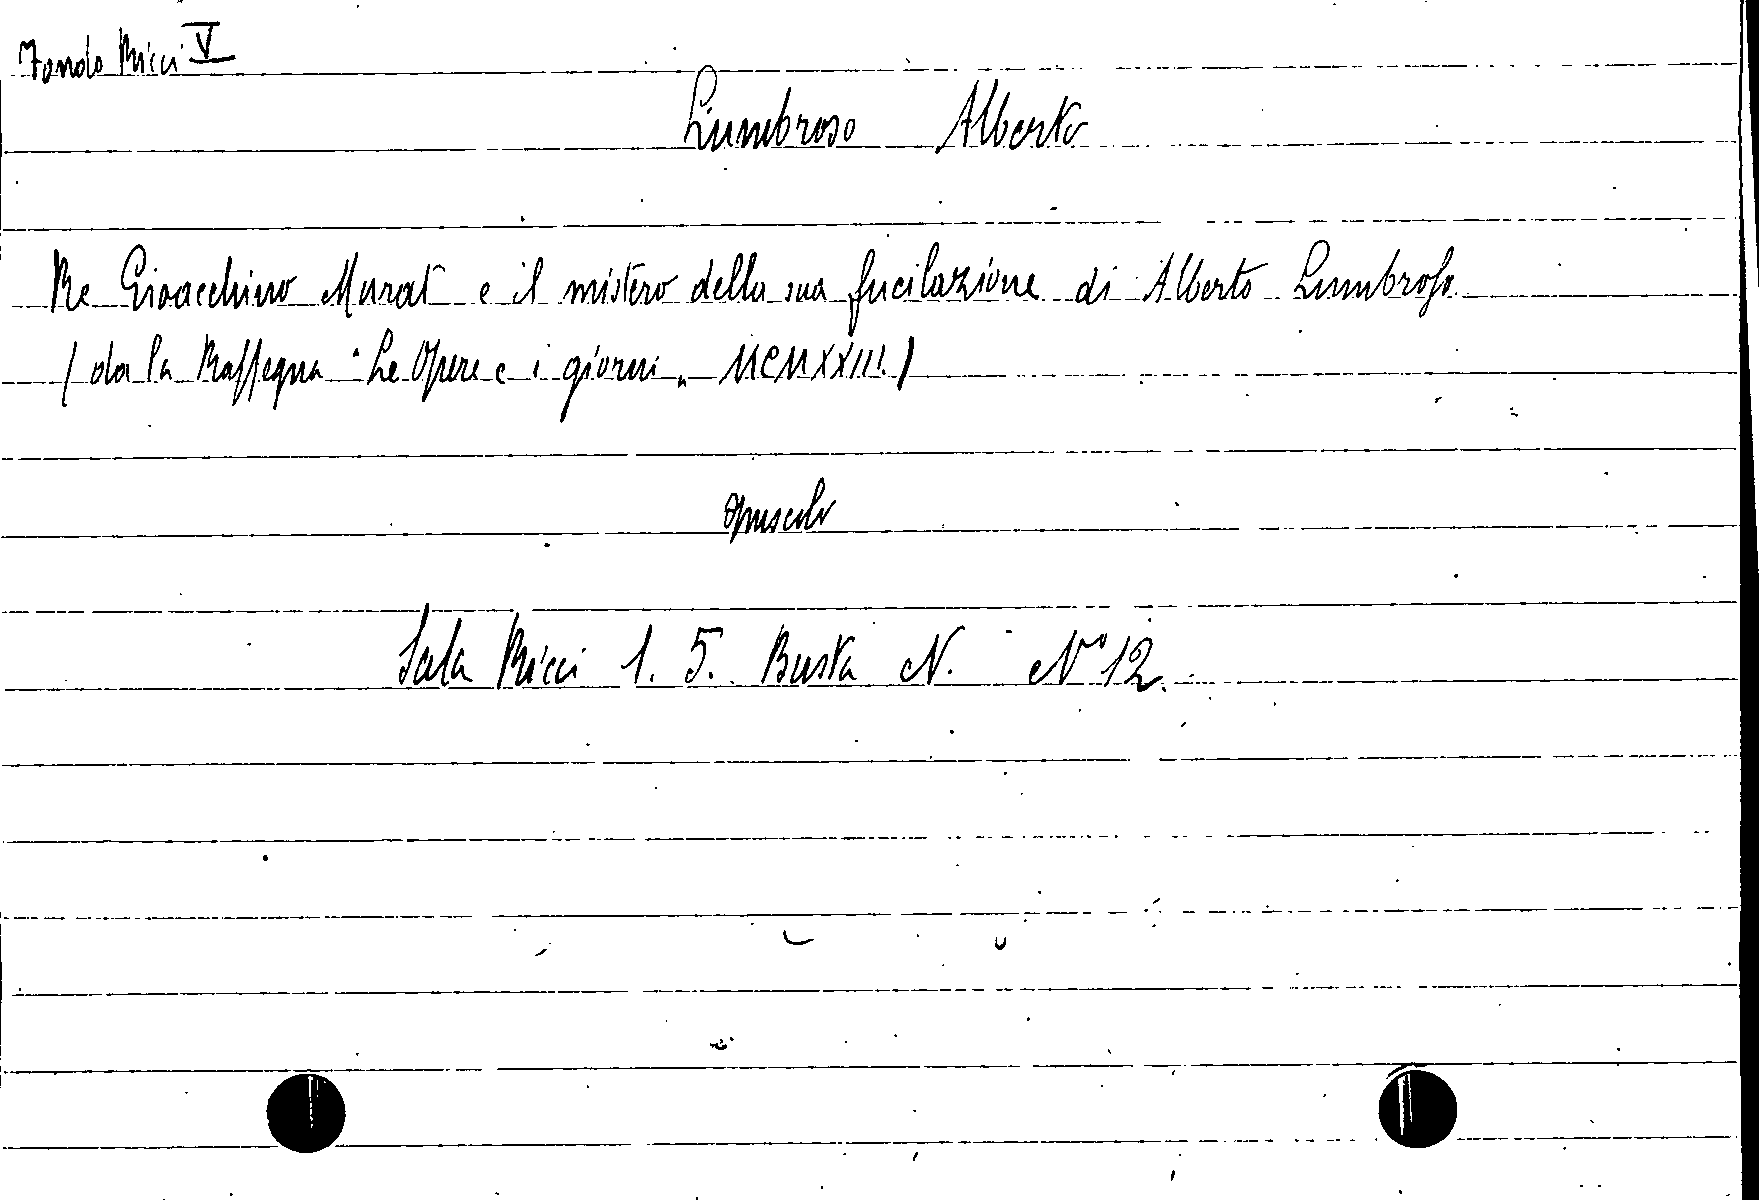 Fondo Ricci V
Lumbroso Alberto
Re Gioacchino Murat e il mistero della sua fucilazione di Alberto Lumbroso.
(da la Rassegna "Le Opere e i giorni" MCMXXIII.)
opuscolo
Sala Ricci 1. 5. Busta N. N° 12.